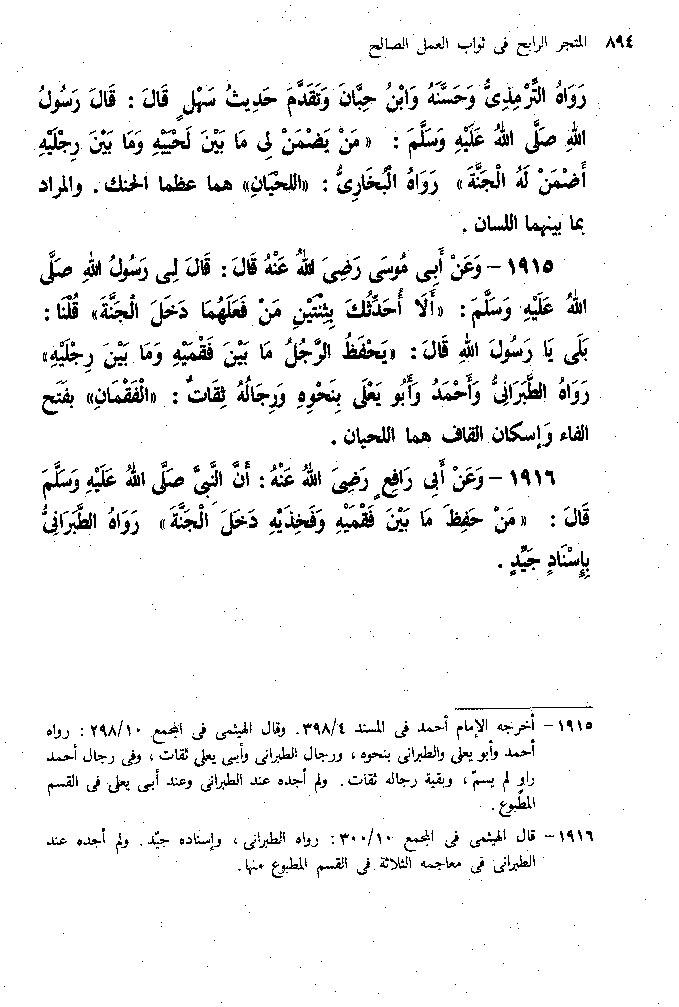 ٨٩٤ المتجر الرابح فى ثواب العمل الصالح
رَوَاهُ التِّرْمِذِىُّ وَحَسَّنَهُ وَابْنُ حِبَّانَ وَتَقَدَّمَ حَدِيثُ سَهْلٍ قَالَ : قَالَ رَسُولُ
اللهِ صَلَّى اللهُ عَلَيْهِ وَسَلَّمَ : « مَنْ يَضْمَنْ لِى مَا بَيْنَ لَحْيَيْهِ وَمَا بَيْنَ رِجْلَيْهِ
أَضْمَنْ لَهُ الْجَنَّةَ» رَوَاهُ الْبُخَارِىُّ : «اللحْيَانِ» هما عظما الحنك . والمراد
بما بينهما اللسان .
١٩١٥ – وَعَنْ أَبِى مُوسَى رَضِىَ اللهُ عَنْهُ قَالَ : قَالَ لِى رَسُولُ اللهِ صَلَّى
اللهُ عَلَيْهِ وَسَلَّمَ : «أَلَا أُحَدِّثُكَ بِثِنْتَيْنِ مَنْ فَعَلَهُمَا دَخَلَ الْجَنَّةَ» قُلْنَا :
بَلَى يَا رَسُولَ اللهِ قَالَ : «يَحْفَظُ الرَّجُلُ مَا بَيْنَ فَقْمَيْهِ وَمَا بَيْنَ رِجْلَيْهِ»
رَوَاهُ الطَّبَرَانِىُّ وَأَحْمَدُ وَأَبُو يَعْلَى بِنَحْوِهِ وَرِجَالُهُ ثِقَاتٌ : «الْفَقْمَانِ» بفتح
الفاء وَإسكان القاف هما اللحيان .
١٩١٦ – وَعَنْ أَبِى رَافِعٍ رَضِىَ اللهُ عَنْهُ : أَنَّ النَّبِىَّ صَلَّى اللهُ عَلَيْهِ وَسَلَّمَ
قَالَ : « مَنْ حَفِظَ مَا بَيْنَ فَقْمَيْهِ وَفَخِذَيْهِ دَخَلَ الْجَنَّةَ» رَوَاهُ الطَّبَرَانِىُّ
بِإِسْنَادٍ جَيِّدٍ .
١٩١٥ – أخرجه الإمام أحمد فى المسند ٣٩٨/٤ . وقال الهيثمى فى المجمع ٢٩٨/١٠ : رواه
أحمد وأبو يعلى والطبرانى بنحوه ، ورجال الطبرانى وأبى يعلى ثقات ، وفى رجال أحمد
راوٍ لم يسمّ ، وبقية رجاله ثقات . ولم أجده عند الطبرانى وعند أبى يعلى فى القسم
المطبوع .
١٩١٦ – قال الهيثمى فى المجمع ٣٠٠/١٠ : رواه الطبرانى ، وإسناده جيّد . ولم أجده عند
الطبرانى فى معاجمه الثلاثة فى القسم المطبوع منها .